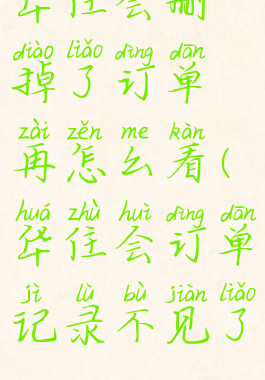 华住会删
diào liǎo dìng dān
掉了订单
zài zěn me kàn
再怎么看(
huá zhù huì dìng dān
华住会订单
jì lù bù jiàn liǎo
记录不见了